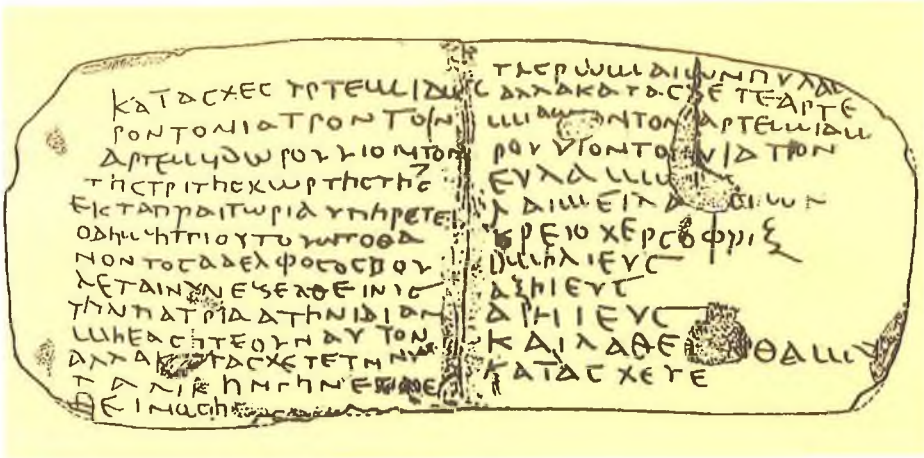 ΚΑΤΑϹΧΕϹ ΤΡΤΕΜΙΔΩ
ΡΟΝΤΟΝΙΑΤΡΟΝΤΟΝ
ΑΡΤΕΜΥΔΩΡΟΥΥΙΟΝΤΟΝ
ΤΗϹΤΡΙΤΗϹΚΩΡΤΗϹΤΗϹ
ΕΙϹΤΑΠΡΑΙΤΩΡΙΑΥΠΗΡΕΤΕΙ
ΟΔΗΜΗΤΡΙΟΥΤΟΥΑΠΟΘΑ
ΝΟΝΤΟϹΑΔΕΛΦΟϹΟϹΒΟΥ
ΛΕΤΑΙΝΥΝΕΞΕΛΘΕΙΝΙϹ
ΤΗΝΠΑΤΡΙΑΔΤΗΝΙΔΙΑΝ
ΜΗΕΑϹΗΤΕΟΥΝΑΥΤΟΝ
ΑΛΛΑΚΑΤΑϹΧΕΤΕΤΗΝ
ΤΑΛΙΚΗΝΓΗΝ
ΤΗϹΡΩΜΑΙΩΝΠΥΛΑϹ
ΑΛΛΑΚΑΤΑϹΧΕΤΕΑΡΤΕ
ΜΙΔΩΡΟΝΤΟΝ ΑΡΤΕΜΙΔΩ
ΡΟΥΥΙΟΝΤΟΝ ΙΑΤΡΟΝ
ΕΥΛΑΜΩ
ΛΑΙΜΕΙΛΑ
ΡΕΙΟΧΕΡϹΟΦΡΙΞ
ΩΜΗΛΙΕΥϹ
ΑΞΗΙΕΥϹ
ΑΡΗΙΕΥϹ
ΚΑΙΛΑΘΕ ΘΑΜΙΥ
ΚΑΤΑϹΧΕΤΕ